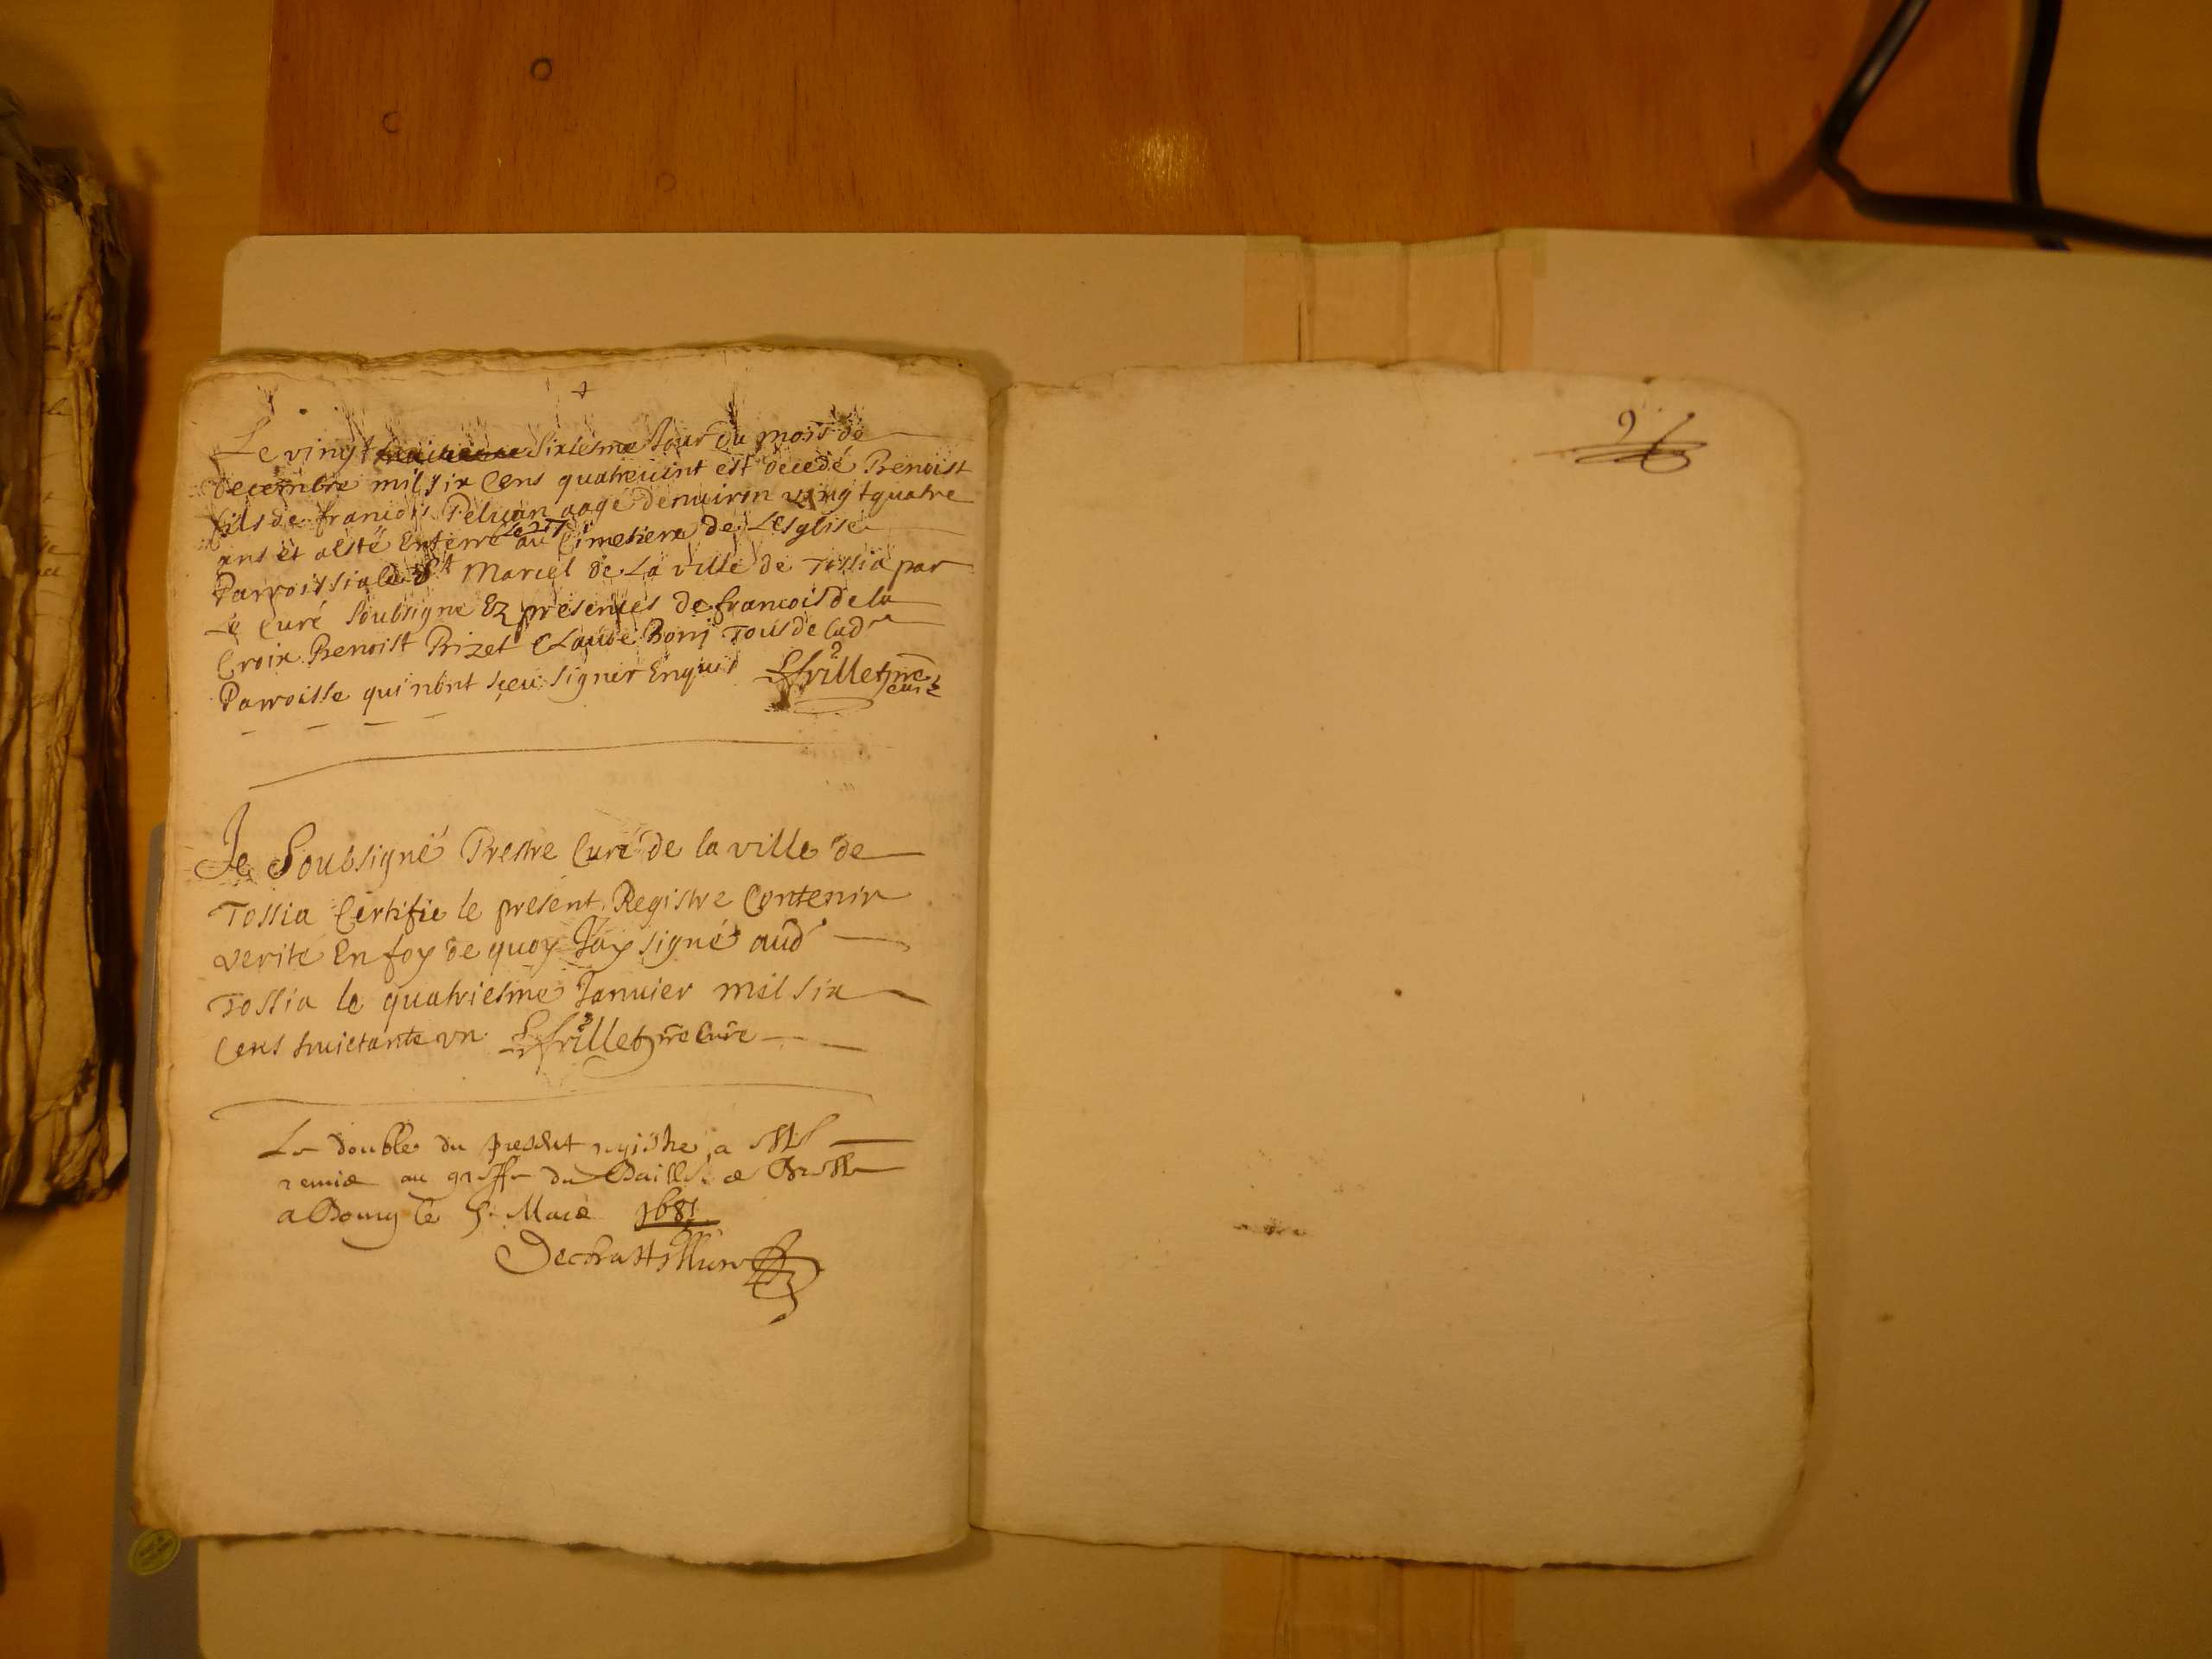 Le vingt Sixiesme Jour du mois de
decembre mil six Cens quatrevint est decedé Benoist
fils de francois Peluin aagé denuiron vingt quatre
ans et a esté Enterré le 27 au Cimetiere de Lesglise
Parroissiale St Marcel de La ville de Tossia par
Le Curé Soubsigné Ez presences de francois de la
Croix Benoist Brizet Claude Bonj Tous de lad
Parroisse qui n'ont sçeu signer Enquis frillet pre
curé
Je Soubsigné Prestre Curé de la ville de
Tossia Certifie le present Registre Contenir
verité En foy de quoy Jay signé aud
Tossia le quatriesme Januier mil six
Cens huictante vn frillet pre Curé
Le double du present registre a esté
remis au greffe du Bailla. de Bresse
a Bourg le 5. Mars 1681
9